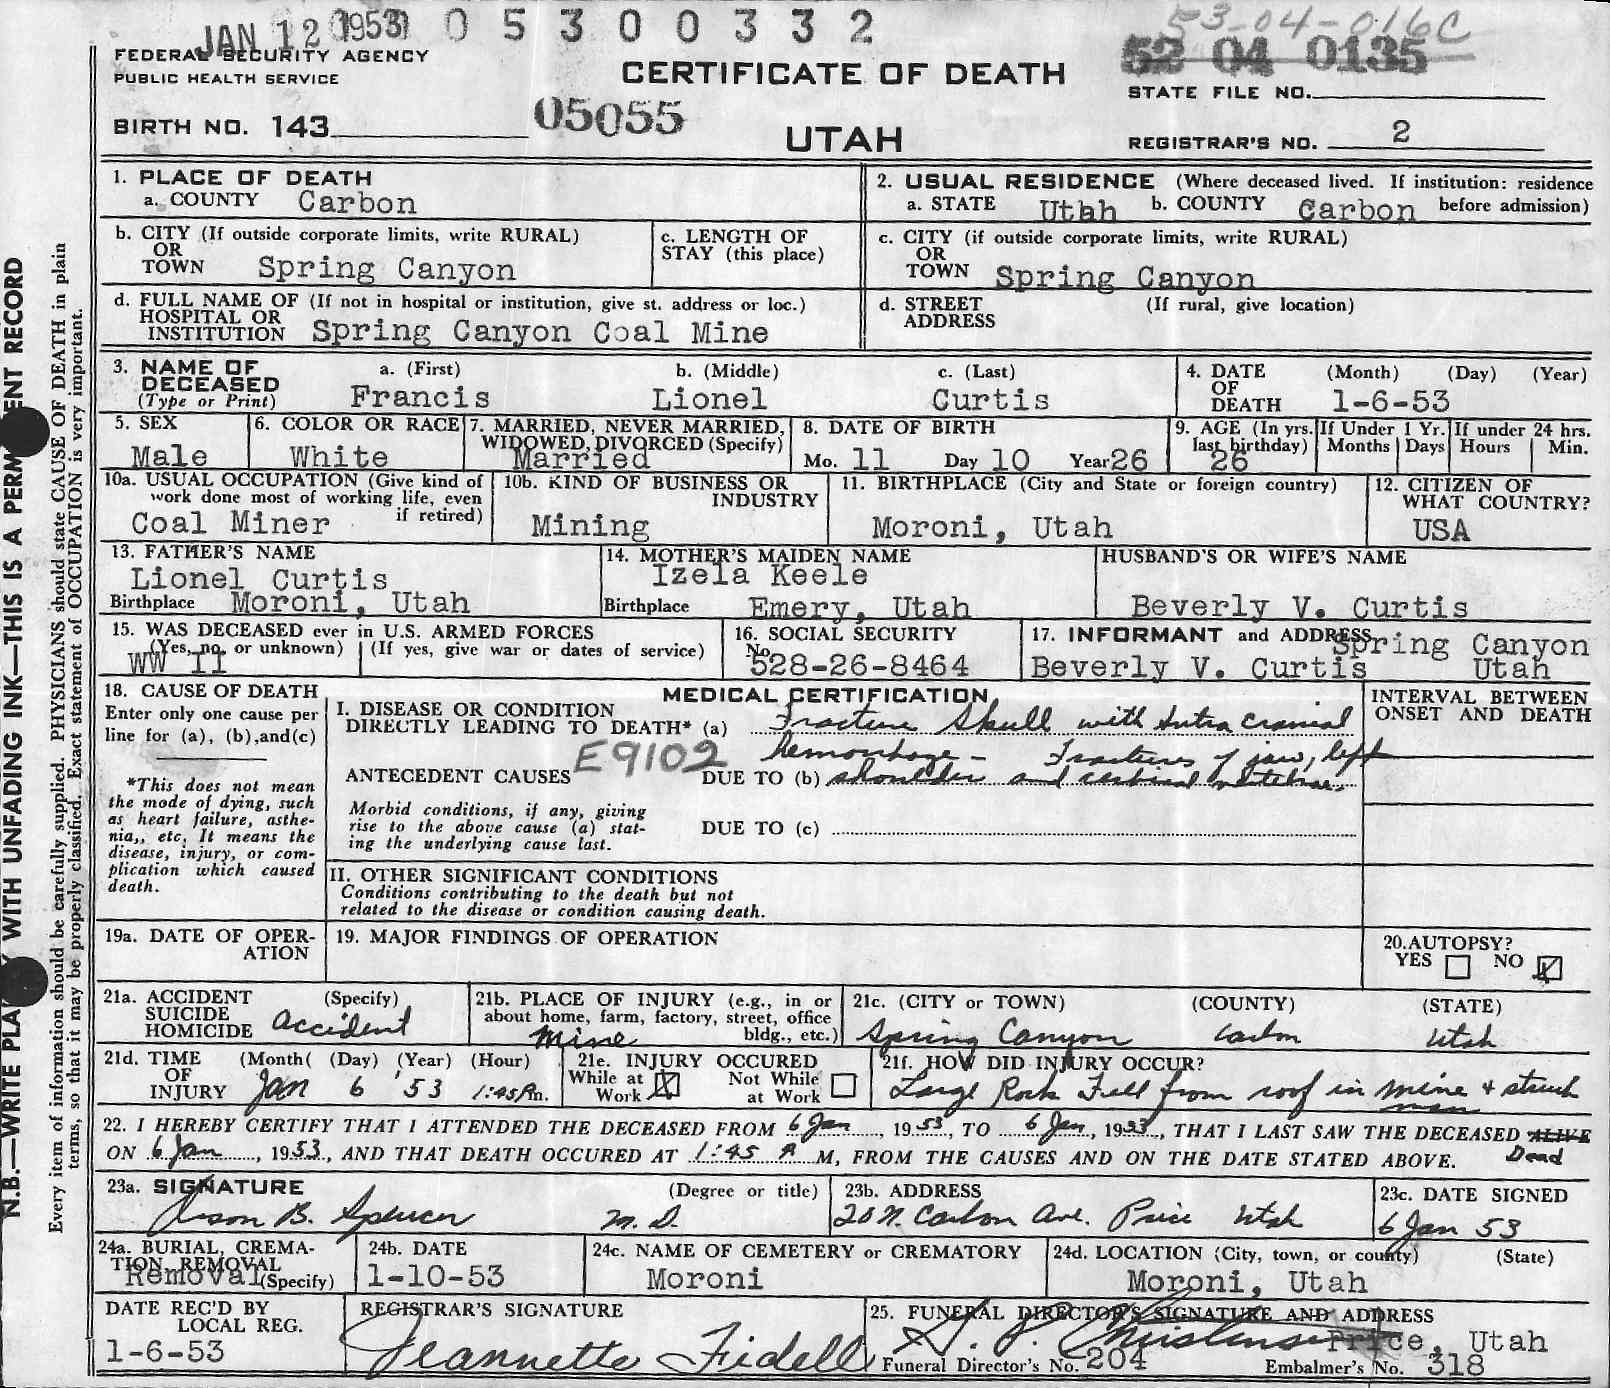 JAN 12 1953 0 5 3 0 0 3 3 2
53-04-016C
52 04 0135
FEDERAL SECURITY AGENCY
PUBLIC HEALTH SERVICE
CERTIFICATE OF DEATH
STATE FILE NO.
BIRTH NO. 143
05055
UTAH
REGISTRAR'S NO. 2
N.B.—WRITE PLA WITH UNFADING INK—THIS IS A PERM ENT RECORD
Every item of information should be carefully supplied. PHYSICIANS should state CAUSE OF DEATH in plain
terms, so that it may be properly classified. Exact statement of OCCUPATION is very important.
1. PLACE OF DEATH
a. COUNTY Carbon
2. USUAL RESIDENCE (Where deceased lived. If institution: residence
a. STATE Utah b. COUNTY Carbon before admission)
b. CITY (If outside corporate limits, write RURAL)
OR
TOWN Spring Canyon
c. LENGTH OF
STAY (this place)
c. CITY (if outside corporate limits, write RURAL)
OR
TOWN Spring Canyon
d. FULL NAME OF (If not in hospital or institution, give st. address or loc.)
HOSPITAL OR
INSTITUTION Spring Canyon Coal Mine
d. STREET (If rural, give location)
ADDRESS
3. NAME OF
DECEASED
(Type or Print)
a. (First) b. (Middle) c. (Last)
Francis Lionel Curtis
4. DATE (Month) (Day) (Year)
OF
DEATH 1-6-53
5. SEX
Male
6. COLOR OR RACE
White
7. MARRIED, NEVER MARRIED,
WIDOWED, DIVORCED (Specify)
Married
8. DATE OF BIRTH
Mo. 11 Day 10 Year 26
9. AGE (In yrs.
last birthday)
26
If Under 1 Yr.
Months Days
If under 24 hrs.
Hours Min.
10a. USUAL OCCUPATION (Give kind of
work done most of working life, even
if retired)
Coal Miner
10b. KIND OF BUSINESS OR
INDUSTRY
Mining
11. BIRTHPLACE (City and State or foreign country)
Moroni, Utah
12. CITIZEN OF
WHAT COUNTRY?
USA
13. FATHER'S NAME
Lionel Curtis
Birthplace Moroni, Utah
14. MOTHER'S MAIDEN NAME
Izela Keele
Birthplace Emery, Utah
HUSBAND'S OR WIFE'S NAME
Beverly V. Curtis
15. WAS DECEASED ever in U.S. ARMED FORCES
(Yes, no, or unknown) (If yes, give war or dates of service)
WW II
16. SOCIAL SECURITY
No.
528-26-8464
17. INFORMANT and ADDRESS
Spring Canyon
Beverly V. Curtis Utah
18. CAUSE OF DEATH
Enter only one cause per
line for (a), (b),and(c)
*This does not mean
the mode of dying, such
as heart failure, asthe-
nia,, etc. It means the
disease, injury, or com-
plication which caused
death.
MEDICAL CERTIFICATION
I. DISEASE OR CONDITION
DIRECTLY LEADING TO DEATH* (a) Fracture Skull with Intra cranial
hemorrhage - Fractures of jaw, left
E9102
ANTECEDENT CAUSES DUE TO (b) shoulder and cervical vertebrae.
Morbid conditions, if any, giving
rise to the above cause (a) stat-
ing the underlying cause last.
DUE TO (c)
INTERVAL BETWEEN
ONSET AND DEATH
II. OTHER SIGNIFICANT CONDITIONS
Conditions contributing to the death but not
related to the disease or condition causing death.
19a. DATE OF OPER-
ATION
19. MAJOR FINDINGS OF OPERATION
20.AUTOPSY?
YES NO
21a. ACCIDENT (Specify)
SUICIDE
HOMICIDE Accident
21b. PLACE OF INJURY (e.g., in or
about home, farm, factory, street, office
bldg., etc.)
Mine
21c. (CITY or TOWN) (COUNTY) (STATE)
Spring Canyon Carbon Utah
21d. TIME (Month( (Day) (Year) (Hour)
OF
INJURY Jan 6 '53 1:45 Am.
21e. INJURY OCCURED
While at Work
Not While at Work
21f. HOW DID INJURY OCCUR?
Large Rock Fell from roof in mine + struck
man
22. I HEREBY CERTIFY THAT I ATTENDED THE DECEASED FROM 6 Jan, 1953, TO 6 Jan, 1953, THAT I LAST SAW THE DECEASED ALIVE
Dead
ON 6 Jan, 1953, AND THAT DEATH OCCURED AT 1:45 A M, FROM THE CAUSES AND ON THE DATE STATED ABOVE.
23a. SIGNATURE (Degree or title)
B. Spencer M.D.
23b. ADDRESS
20 N. Carbon Ave. Price Utah
23c. DATE SIGNED
6 Jan 53
24a. BURIAL, CREMA-
TION, REMOVAL
Removal (Specify)
24b. DATE
1-10-53
24c. NAME OF CEMETERY or CREMATORY
Moroni
24d. LOCATION (City, town, or county) (State)
Moroni, Utah
DATE REC'D BY
LOCAL REG.
1-6-53
REGISTRAR'S SIGNATURE
Jeannette Fidell
25. FUNERAL DIRECTOR'S SIGNATURE AND ADDRESS
Price, Utah
Funeral Director's No. 204 Embalmer's No. 318